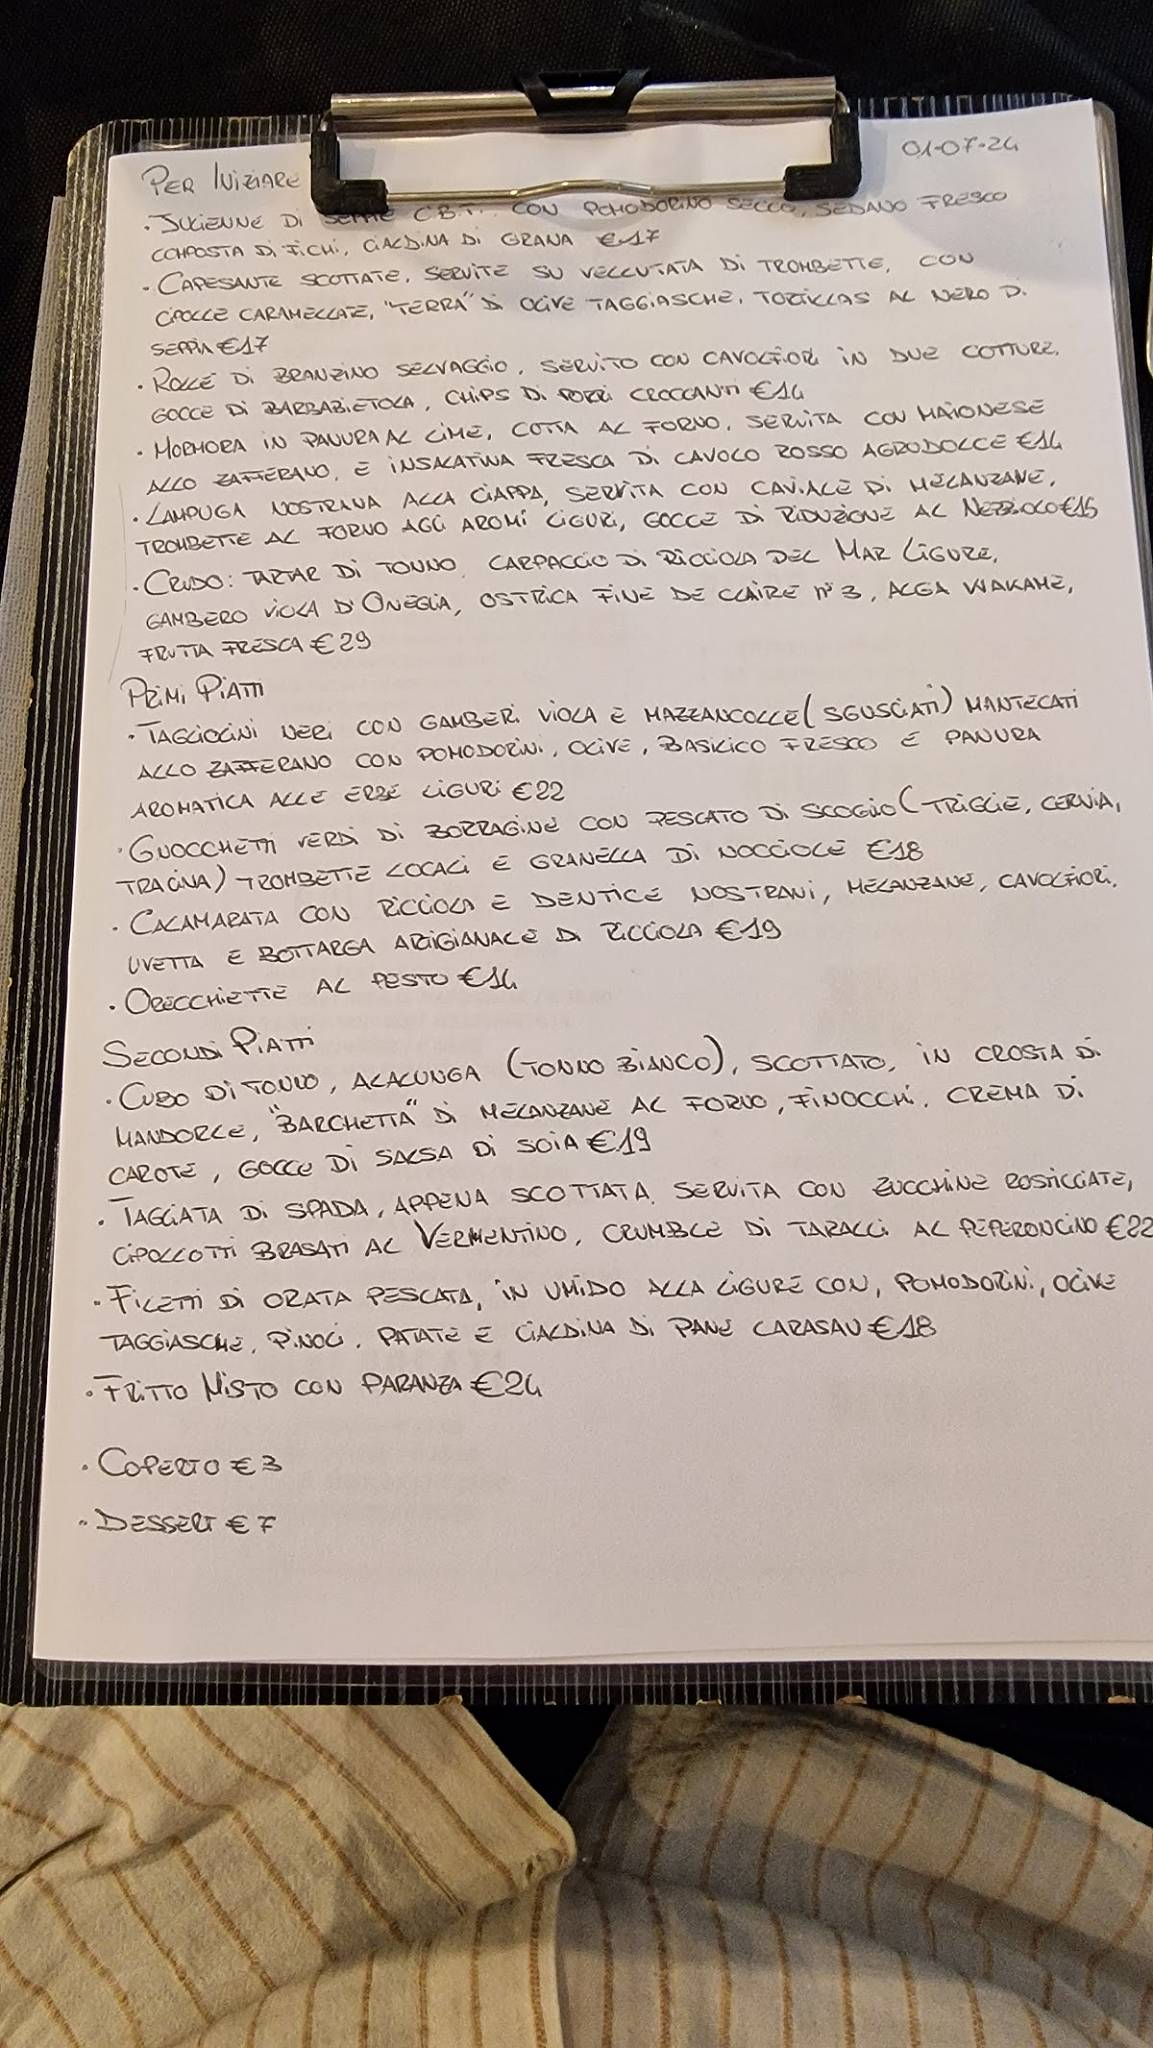 01-07-24
PER INIZIARE
· JULIENNE DI SEPPIE C.B.T. CON POMODORINO SECCO, SEDANO FRESCO
COMPOSTA DI FICHI, CIALDINA DI GRANA €17
· CAPESANTE SCOTTATE, SERVITE SU VELLUTATA DI TROMBETTE, CON
CIPOLLE CARAMELLATE, "TERRA" DI OLIVE TAGGIASCHE, TORTILLAS AL NERO DI
SEPPIA €17
· ROLLÈ DI BRANZINO SELVAGGIO, SERVITO CON CAVOLFIORI IN DUE COTTURE,
GOCCE DI BARBABIETOLA, CHIPS DI PORRI CROCCANTI €14
· MORMORA IN PANURA AL LIME, COTTA AL FORNO, SERVITA CON MAIONESE
ALLO ZAFFERANO, E INSALATINA FRESCA DI CAVOLO ROSSO AGRODOLCE €14
· LAMPUGA NOSTRANA ALLA CIAPPA, SERVITA CON CAVIALE DI MELANZANE,
TROMBETTE AL FORNO AGLI AROMI LIGURI, GOCCE DI RIDUZIONE AL NEBBIOLO €15
· CRUDO: TARTAR DI TONNO, CARPACCIO DI RICCIOLA DEL MAR LIGURE,
GAMBERO VIOLA D'ONEGLIA, OSTRICA FINE DE CLAIRE N°3, ALGA WAKAME,
FRUTTA FRESCA €29
PRIMI PIATTI
· TAGLIOLINI NERI CON GAMBERI VIOLA E MAZZANCOLLE (SGUSCIATI) MANTECATI
ALLO ZAFFERANO CON POMODORINI, OLIVE, BASILICO FRESCO E PANURA
AROMATICA ALLE ERBE LIGURI €22
· GNOCCHETTI VERDI DI BORRAGINE CON PESCATO DI SCOGLIO (TRIGLIE, CERNIA,
TRACINA) TROMBETTE LOCALI E GRANELLA DI NOCCIOLE €18
· CALAMARATA CON RICCIOLA E DENTICE NOSTRANI, MELANZANE, CAVOLFIORI,
UVETTA E BOTTARGA ARTIGIANALE DI RICCIOLA €19
· ORECCHIETTE AL PESTO €14
SECONDI PIATTI
· CUBO DI TONNO, ALALUNGA (TONNO BIANCO), SCOTTATO, IN CROSTA DI
MANDORLE, "BARCHETTA" DI MELANZANE AL FORNO, FINOCCHI, CREMA DI
CAROTE, GOCCE DI SALSA DI SOIA €19
· TAGLIATA DI SPADA, APPENA SCOTTATA, SERVITA CON ZUCCHINE ROSTICCIATE,
CIPOLLOTTI BRASATI AL VERMENTINO, CRUMBLE DI TARALLI AL PEPERONCINO €22
· FILETTI DI ORATA PESCATA, IN UMIDO ALLA LIGURE CON, POMODORINI, OLIVE
TAGGIASCHE, PINOLI, PATATE E CIALDINA DI PANE CARASAU €18
· FRITTO MISTO CON PARANZA €24
· COPERTO € 3
· DESSERT € 7